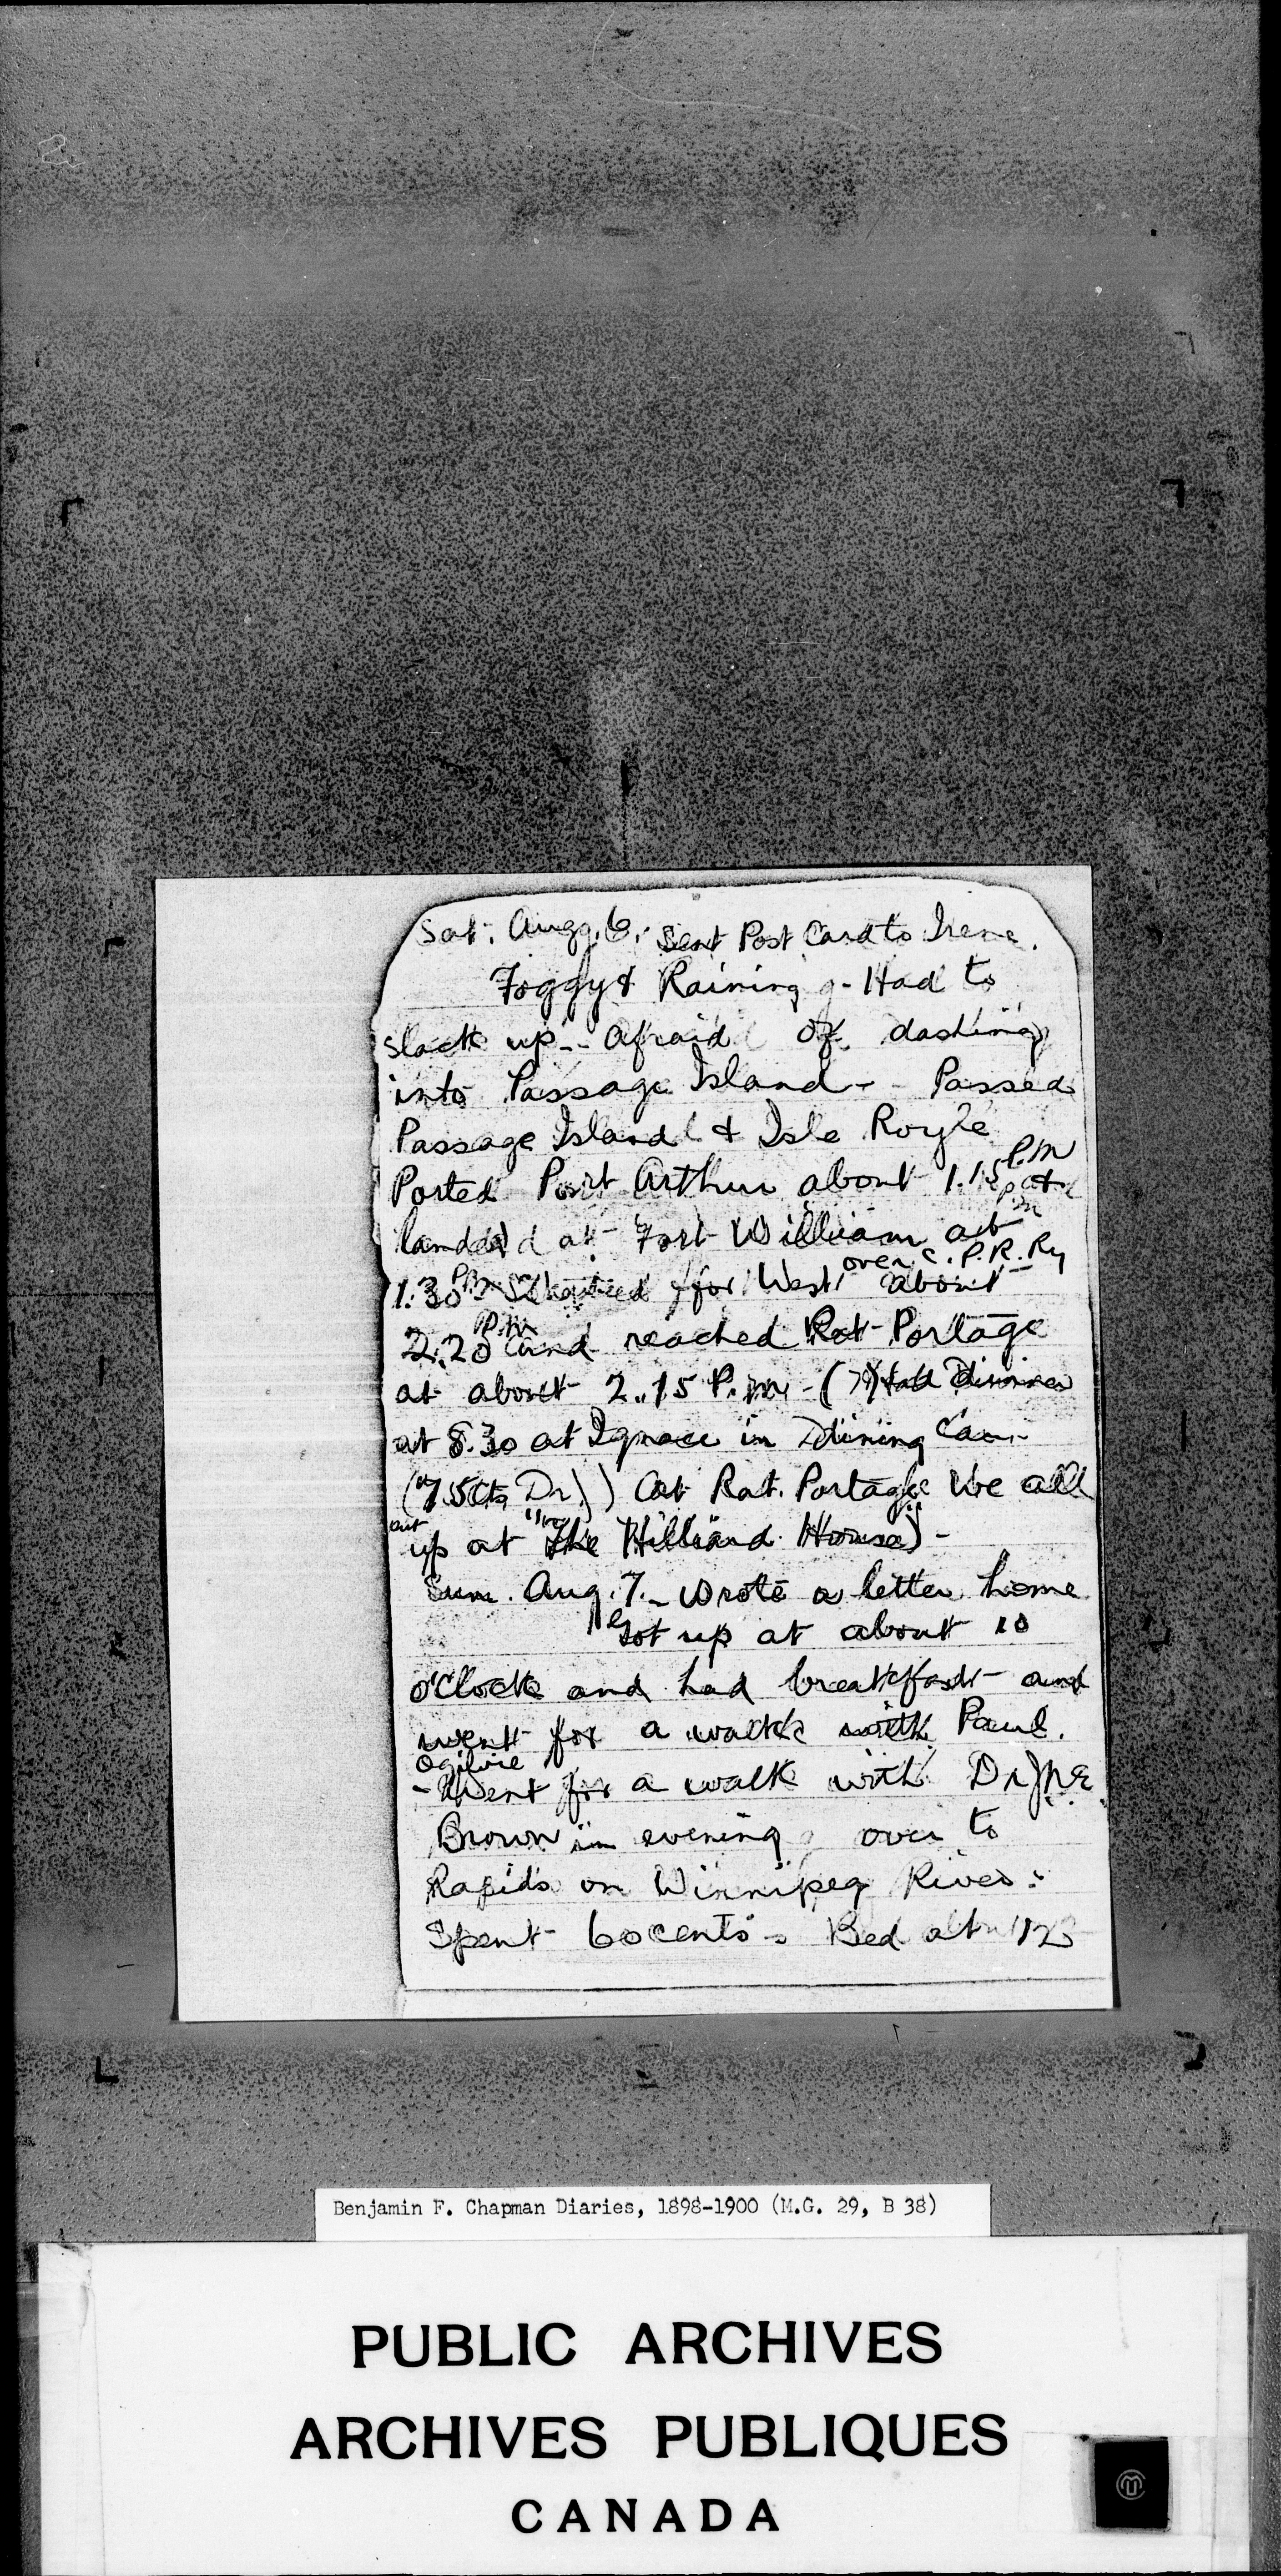 Sat. Aug. 6. Sent Post Card to Irene.
Foggy & Raining - Had to
slack up - afraid of dashing
into Passage Island - Passed
Passage Island & Isle Royle
Ported Port Arthur about 1.15 P.M
landed at Fort William at
over C.P.R. Ry
1.30 PM for West about
2.20 P.M and reached Rat Portage
at about 2.15 P.M. - (?) Had Dinner
at 8.30 at Ignace in Dining Car -
(75 cts Dr.) At Rat Portage we all
put up at "The Hilliard House" -
Sun. Aug. 7. - Wrote a letter home
Got up at about 10
o'clock and had breakfast - and
went for a walk with Paul.
Ogilvie
- Went for a walk with Dr.
Brown in evening over to
Rapids on Winnipeg River.
Spent 60 cents - Bed at
Benjamin F. Chapman Diaries, 1898-1900 (M.G. 29, B 38)
PUBLIC ARCHIVES
ARCHIVES PUBLIQUES
CANADA